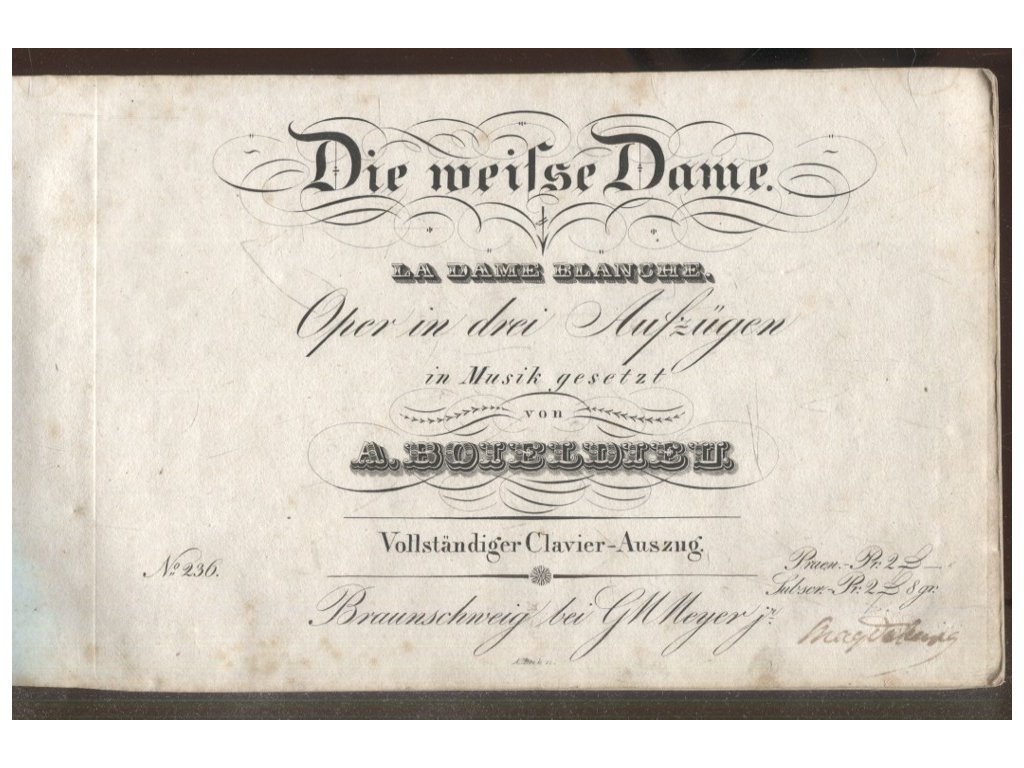 Die weiſse Dame.
LA DAME BLANCHE.
Oper in drei Aufzügen
in Musik gesetzt
von
A. BOIELDIEU.
Vollständiger Clavier-Auszug.
No. 236.
Praen.-Pr. 2
Subscr.-Pr. 2 8 gr.
Braunschweig bei G M Meyer jr.